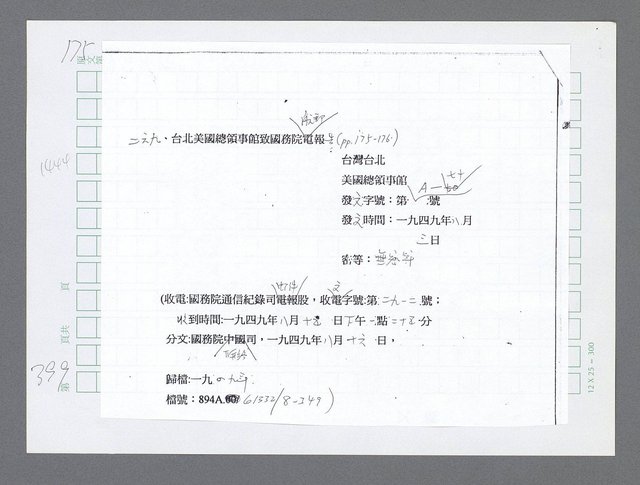 175
二六九、台北美國總領事館致國務院電報 (pp.175-176)
台灣台北
美國總領事館
A—
七十
發文字號：第 號
發文時間：一九四九年八月
三日
密等：無密等
1444
(收電:國務院通信紀錄司電報股，收電字號:第二九一二號；
文
收到時間:一九四九年八月十五日下午一點二十五分
分文:國務院中國司，一九四九年八月十六日，
頁
頁共
歸檔:一九四九年
399
第
檔號：894A. 61532/8-349)
12 X 25 = 300